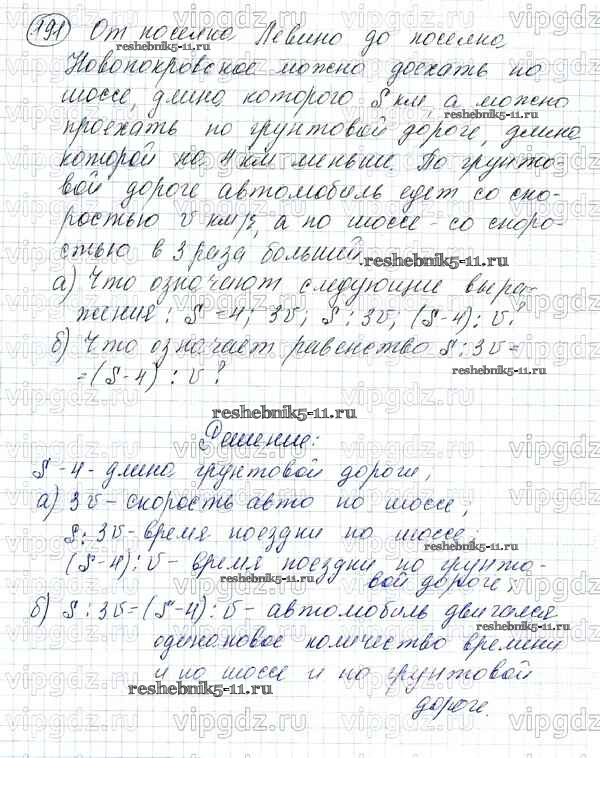 191 От поселка Левино до поселка
Новопокровское можно доехать по
шоссе, длина которого S км, а можно
проехать по грунтовой дороге, длина
которой на 4 км меньше. По грунто-
вой дороге автомобиль едет со ско-
ростью v км/ч, а по шоссе - со скоро-
стью в 3 раза большей.
а) Что означают следующие выра-
жения: S =4; 3v; S : 3v; (S-4) : v?
б) Что означает равенство S : 3v =
=(S-4) : v?
reshebnik5-11.ru
Решение:
S -4 - длина грунтовой дороги;
а) 3v - скорость авто по шоссе;
S : 3v - время поездки по шоссе;
(S-4) : v - время поездки по грунто-
вой дороге;
б) S : 3v = (S-4) : v - автомобиль двигался
одинаковое количество времени
и по шоссе и по грунтовой
reshebnik5-11.ru
дороге.